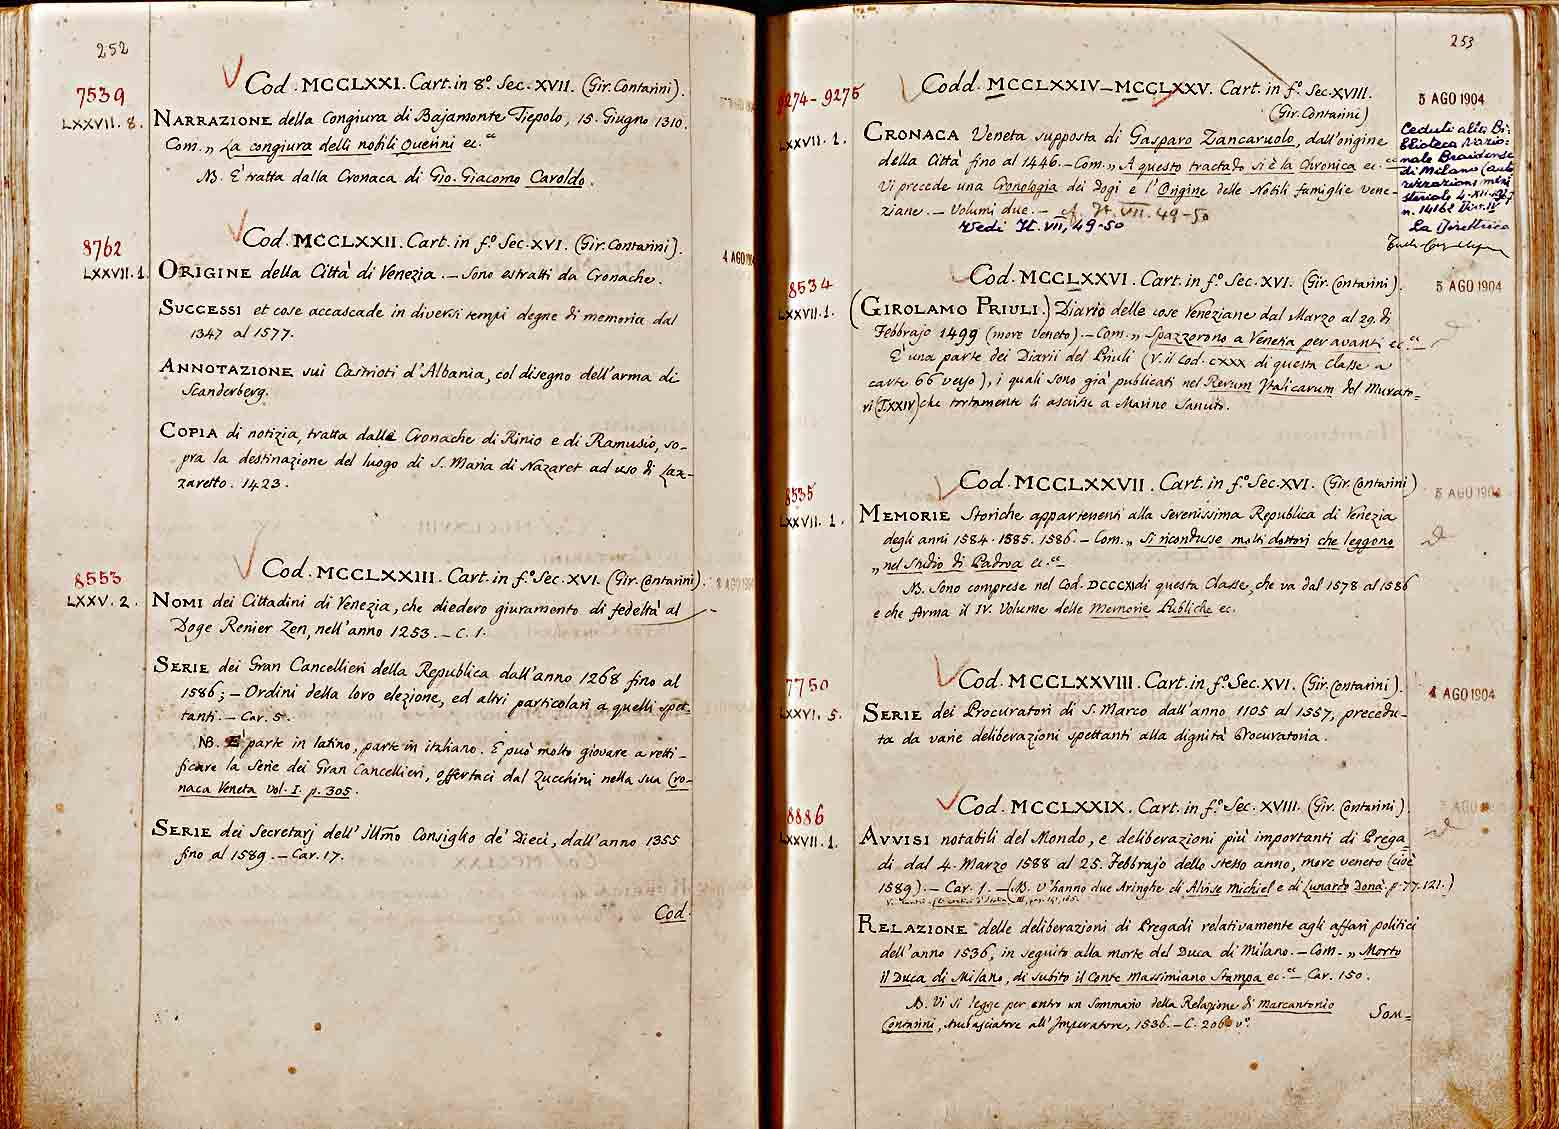 252
Cod. MCCLXXI. Cart. in 8º. Sec. XVII. (Gir. Contarini).
7539
LXXVII. 8.
NARRAZIONE della Congiura di Bajamonte Tiepolo, 15. Giugno 1310.
Com. „ La congiura delli nobili Querini ec.
NB. È tratta dalla Cronaca di Gio. Giacomo Caroldo.
Cod. MCCLXXII. Cart. in fº. Sec. XVI. (Gir. Contarini).
8762
4 AGO 190
LXXVII. 1.
ORIGINE della Città di Venezia. — Sono estratti da Cronache.
SUCCESSI et cose accascade in diversi tempi degne di memoria dal
1347 al 1577.
ANNOTAZIONE sui Castrioti d'Albania, col disegno dell'arma di
Scanderberg.
COPIA di notizia, tratta dalle Cronache di Rinio e di Ramusio, so-
pra la destinazione del luogo di S. Maria di Nazaret ad uso di Laz-
zaretto. 1423.
Cod. MCCLXXIII. Cart. in fº. Sec. XVI. (Gir. Contarini).
8553
LXXV. 2.
NOMI dei Cittadini di Venezia, che diedero giuramento di fedeltà al
Doge Renier Zen, nell'anno 1253. — C. 1.
SERIE dei Gran Cancellieri della Republica dall'anno 1268 fino al
1586; — Ordini della loro elezione, ed altri particolari a quelli spet-
tanti. — Car. 5.
NB. È parte in latino, parte in italiano. E può molto giovare a retti-
ficare la Serie dei Gran Cancellieri, offertaci dal Zucchini nella sua Cro-
naca Veneta Vol. I. p. 305.
SERIE dei Secretarj dell'Illmo Consiglio de' Dieci, dall'anno 1355
fino al 1589. — Car. 17.
Cod.
253
Codd. MCCLXXIV — MCCLXXV. Cart. in fº. Sec. XVIII.
(Gir. Contarini)
9274-9275
5 AGO 1904
LXXVII. 1.
CRONACA Veneta supposta di Gasparo Zancaruolo, dall'origine
della Città fino al 1446. — Com. „ A questo tractado si è la Chronica ec.
Vi precede una Cronologia dei Dogi e l'Origine delle Nobili famiglie vene-
ziane. — Volumi due. — cf. It. VII. 49-50
Vedi It. VII, 49-50
Ceduti alla Bi-
blioteca Nazio-
nale Braidense
di Milano (auto
rizzazione mini
steriale 4-XII-
n. 14162 Div. IV
La Direttrice
Cod. MCCLXXVI. Cart. in fº. Sec. XVI. (Gir. Contarini).
8534
5 AGO 1904
LXXVII. 1.
(GIROLAMO PRIULI.) Diario delle cose Veneziane dal Marzo al 29. di
Febbrajo 1499 (more Veneto). — Com. „ Spazzorono a Venetia per avanti ec.
È una parte dei Diarii del Priuli (V. il Cod. CXXX di questa Classe a
carte 66 verso), i quali sono già publicati nel Rerum Italicarum del Murato=
ri (T. XXIV) che tortamente li ascrisse a Marino Sanuto.
Cod. MCCLXXVII. Cart. in fº. Sec. XVI. (Gir. Contarini)
8535
5 AGO 1904
LXXVII. 1.
MEMORIE Storiche appartenenti alla Serenissima Republica di Venezia
degli anni 1584. 1585. 1586. — Com. „ Si ricondusse molti dottori che leggono
„ nel Studio di Padova ec.
NB. Sono comprese nel Cod. DCCCXI di questa Classe, che va dal 1578 al 1586
e che forma il IV. Volume delle Memorie Publiche ec.
Cod. MCCLXXVIII. Cart. in fº. Sec. XVI. (Gir. Contarini).
7750
4 AGO 1904
LXXVI. 5.
SERIE dei Procuratori di S. Marco dall'anno 1105 al 1557, precedu-
ta da varie deliberazioni spettanti alla dignità Procuratoria.
Cod. MCCLXXIX. Cart. in fº. Sec. XVIII. (Gir. Contarini).
8886
5 AGO
LXXVII. 1.
AVVISI notabili del Mondo, e deliberazioni più importanti di Prega=
di dal 4. Marzo 1588 al 25. Febbrajo dello stesso anno, more veneto (cioè
1589). — Car. 1. — (NB. V'hanno due Aringhe di Alvise Michiel e di Lunardo Donà. p. 77. 121.)
RELAZIONE delle deliberazioni di Pregadi relativamente agli affari politici
dell'anno 1536, in seguito alla morte del Duca di Milano. — Com. „ Morto
il Duca di Milano, di subito il Conte Massimiano Stampa ec. — Car. 150.
NB. Vi si legge per entro un Sommario della Relazione di Marcantonio
Contarini, Ambasciatore all'Imperatore, 1536. — C. 206 vº.
Som=